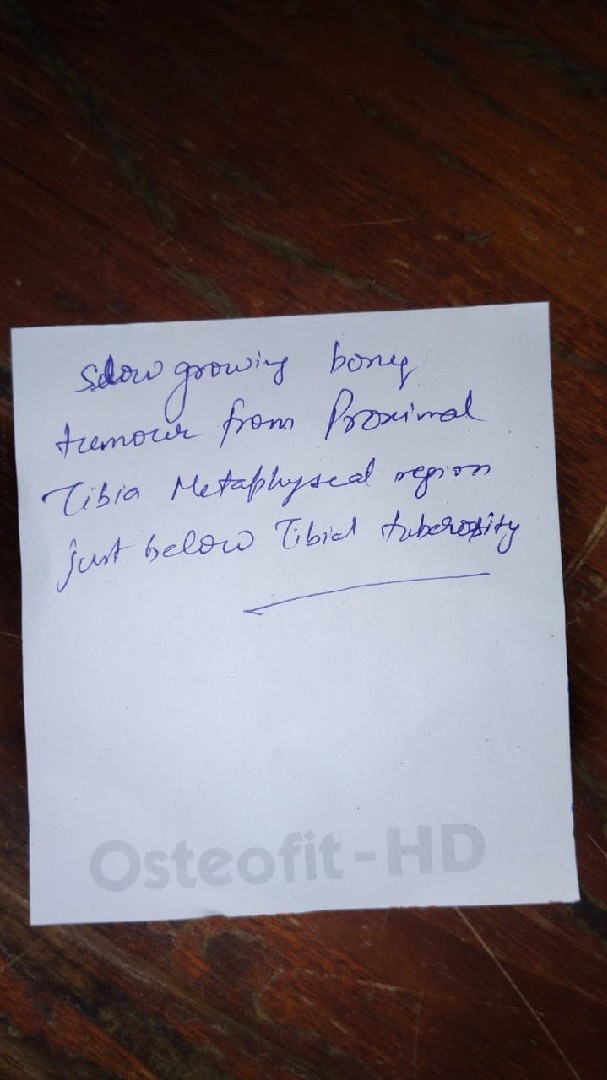 Slow growing bony
tumour from Proximal
Tibia Metaphyseal region
just below Tibial tuberosity
Osteofit-HD